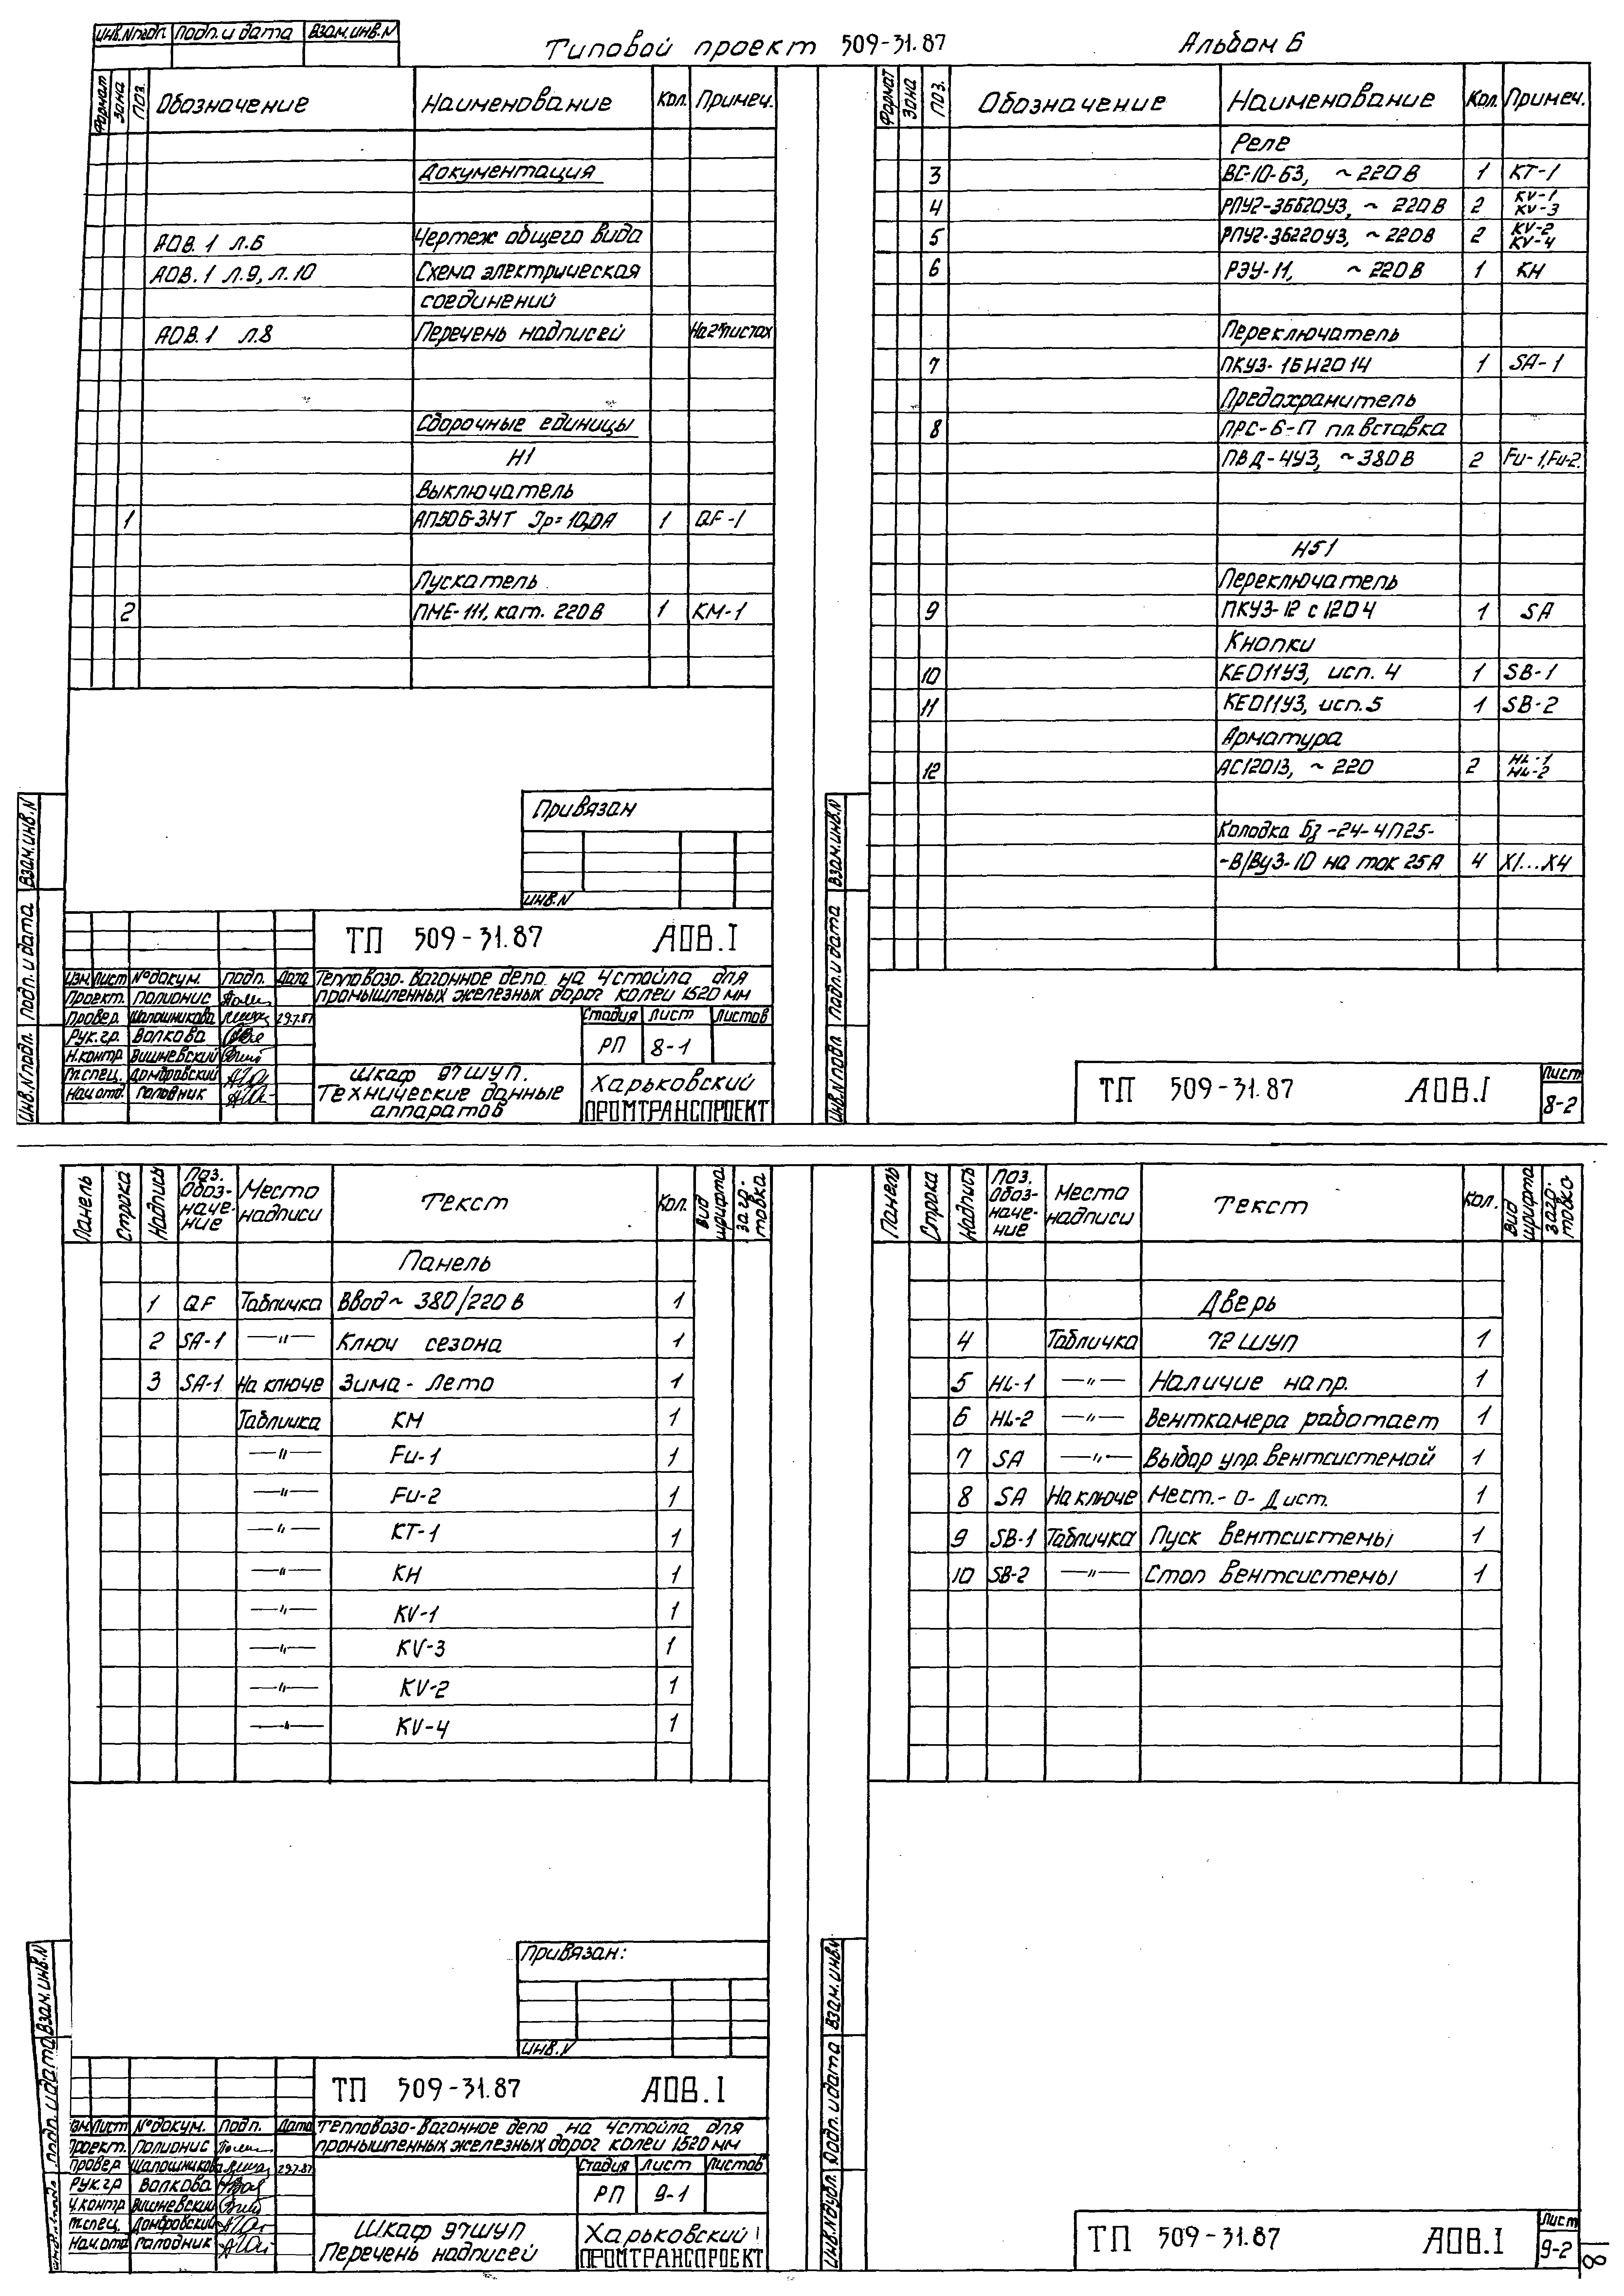 Инв.N подл. Подп. и дата Взам.инв.N
Типовой проект 509-31.87 Альбом 6
Формат Зона Поз. Обозначение Наименование Кол. Примеч.
Документация
АОВ.1 л.6 Чертеж общего вида
АОВ.1 л.9, л.10 Схема электрическая
соединений
АОВ.1 л.8 Перечень надписей На 2х листах
Сборочные единицы
Н1
Выключатель
1 АП50Б-3МТ Iр=10,0А 1 QF-1
Пускатель
2 ПМЕ-111, кат. 220В 1 КМ-1
Привязан
инв.N
ТП 509-31.87 АОВ.I
Изм. Лист №докум. Подп. Дата
Проект. Полионис
Провер. Шапошникова 29.7.87
Рук.гр. Волкова
Н.контр Вишневский
Гл.спец. Домбровский
Нач.отд. Головник
Тепловозо-вагонное депо на 4 стойла для
промышленных железных дорог колеи 1520 мм
Стадия Лист Листов
РП 8-1
Шкаф 97ШУП.
Технические данные
аппаратов
Харьковский
ПРОМТРАНСПРОЕКТ
Взам.инв.N
Подп. и дата
Инв.N подл.
Формат Зона Поз. Обозначение Наименование Кол. Примеч.
Реле
3 ВС-10-63, ~220В 1 КТ-1
4 РПУ2-36620У3, ~220В 2 KV-1 KV-3
5 РПУ2-36220У3, ~220В 2 KV-2 KV-4
6 РЭУ-11, ~220В 1 КН
Переключатель
7 ПКУ3-16И2014 1 SA-1
Предохранитель
8 ПРС-6-П пл.вставка
ПВД-4У3, ~380В 2 Fu-1, Fu-2.
Н51
Переключатель
9 ПКУ3-12 с 1204 1 SA
Кнопки
10 КЕ011У3, исп. 4 1 SB-1
11 КЕ011У3, исп.5 1 SB-2
Арматура
12 АС12013, ~220 2 HL-1 HL-2
Колодка Бз-24-4П25-
-В/ВУ3-10 на ток 25А 4 Х1...Х4
Взам.инв.N
Подп. и дата
Инв.N подл
ТП 509-31.87 АОВ.I Лист
8-2
Панель Строка Надпись Поз. Обоз-наче-ние Место надписи Текст Кол. Вид шрифта загo-товка
Панель
1 QF Табличка Ввод ~ 380/220 В 1
2 SA-1 —"— Ключ сезона 1
3 SA-1 На ключе Зима - Лето 1
Табличка КМ 1
—"— Fu-1 1
—"— Fu-2 1
—"— КТ-1 1
—"— КН 1
—"— KV-1 1
—"— KV-3 1
—"— KV-2 1
—"— KV-4 1
Привязан:
Инв.N
ТП 509-31.87 АОВ.I
Изм. Лист №докум. Подп. Дата
Проект. Полионис
Провер Шапошникова 29.7.87
Рук.гр Волкова
Н.контр Вишневский
Гл.спец. Домбровский
Нач.отд Головник
Тепловозо-вагонное депо на 4 стойла для
промышленных железных дорог колеи 1520 мм
Стадия Лист Листов
РП 9-1
Шкаф 97ШУП
Перечень надписей
Харьковский
ПРОМТРАНСПРОЕКТ
Взам.инв.N
Подп. и дата
Панель Строка Надпись Поз. Обоз-наче-ние Место надписи Текст Кол. Вид шрифта загo-товка
Дверь
4 Табличка 72 ШУП 1
5 HL-1 —"— Наличие напр. 1
6 HL-2 —"— Венткамера работает 1
7 SA —"— Выбор упр. вентсистемой 1
8 SA На ключе Мест.-0-Дист. 1
9 SB-1 Табличка Пуск вентсистемы 1
10 SB-2 —"— Стоп вентсистемы 1
Взам.инв.N
Подп. и дата
Инв.N дубл.
ТП 509-31.87 АОВ.I Лист
9-2
18